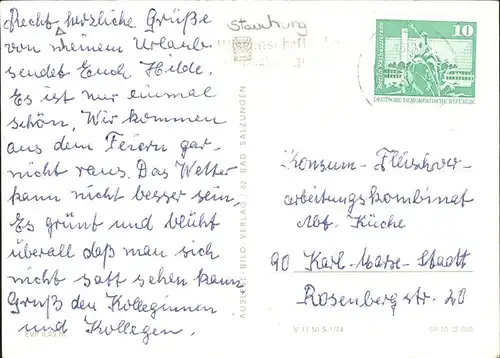 Recht herzliche Grüße
von meinem Urlaub
sendet Euch Hilde.
Es ist nur einmal
schön. Wir kommen
aus dem Feiern gar
nicht raus. Das Wetter
kann nicht besser sein.
Es grünt und blüht
überall daß man sich
nicht satt sehen kann
Gruß den Kolleginnen
und Kollegen.
10
DEUTSCHE DEMOKRATISCHE REPUBLIK
BILD VERLAG 62 BAD SALZUNGEN
Konsum-Fleischver-
arbeitungskombinat
Abt. Küche
90 Karl-Marx-Stadt
Rosenbergstr. 20
V 11 50 S 1/74